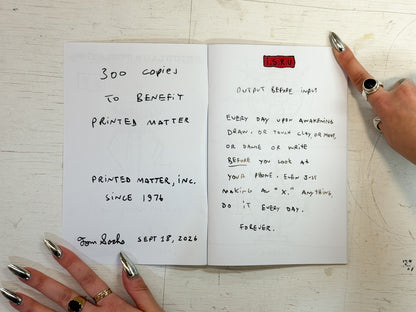 300 COPIES
TO BENEFIT
PRINTED MATTER
PRINTED MATTER, INC.
SINCE 1976
Tom Sachs SEPT 18, 2026
I.S.R.U.
OUTPUT BEFORE INPUT
EVERY DAY UPON AWAKENING
DRAW. OR TOUCH CLAY, OR MOVE,
OR DANCE OR WRITE
BEFORE YOU LOOK AT
YOUR PHONE. EVEN JUST
MAKING AN "X." ANYTHING,
DO IT EVERY DAY.
FOREVER.